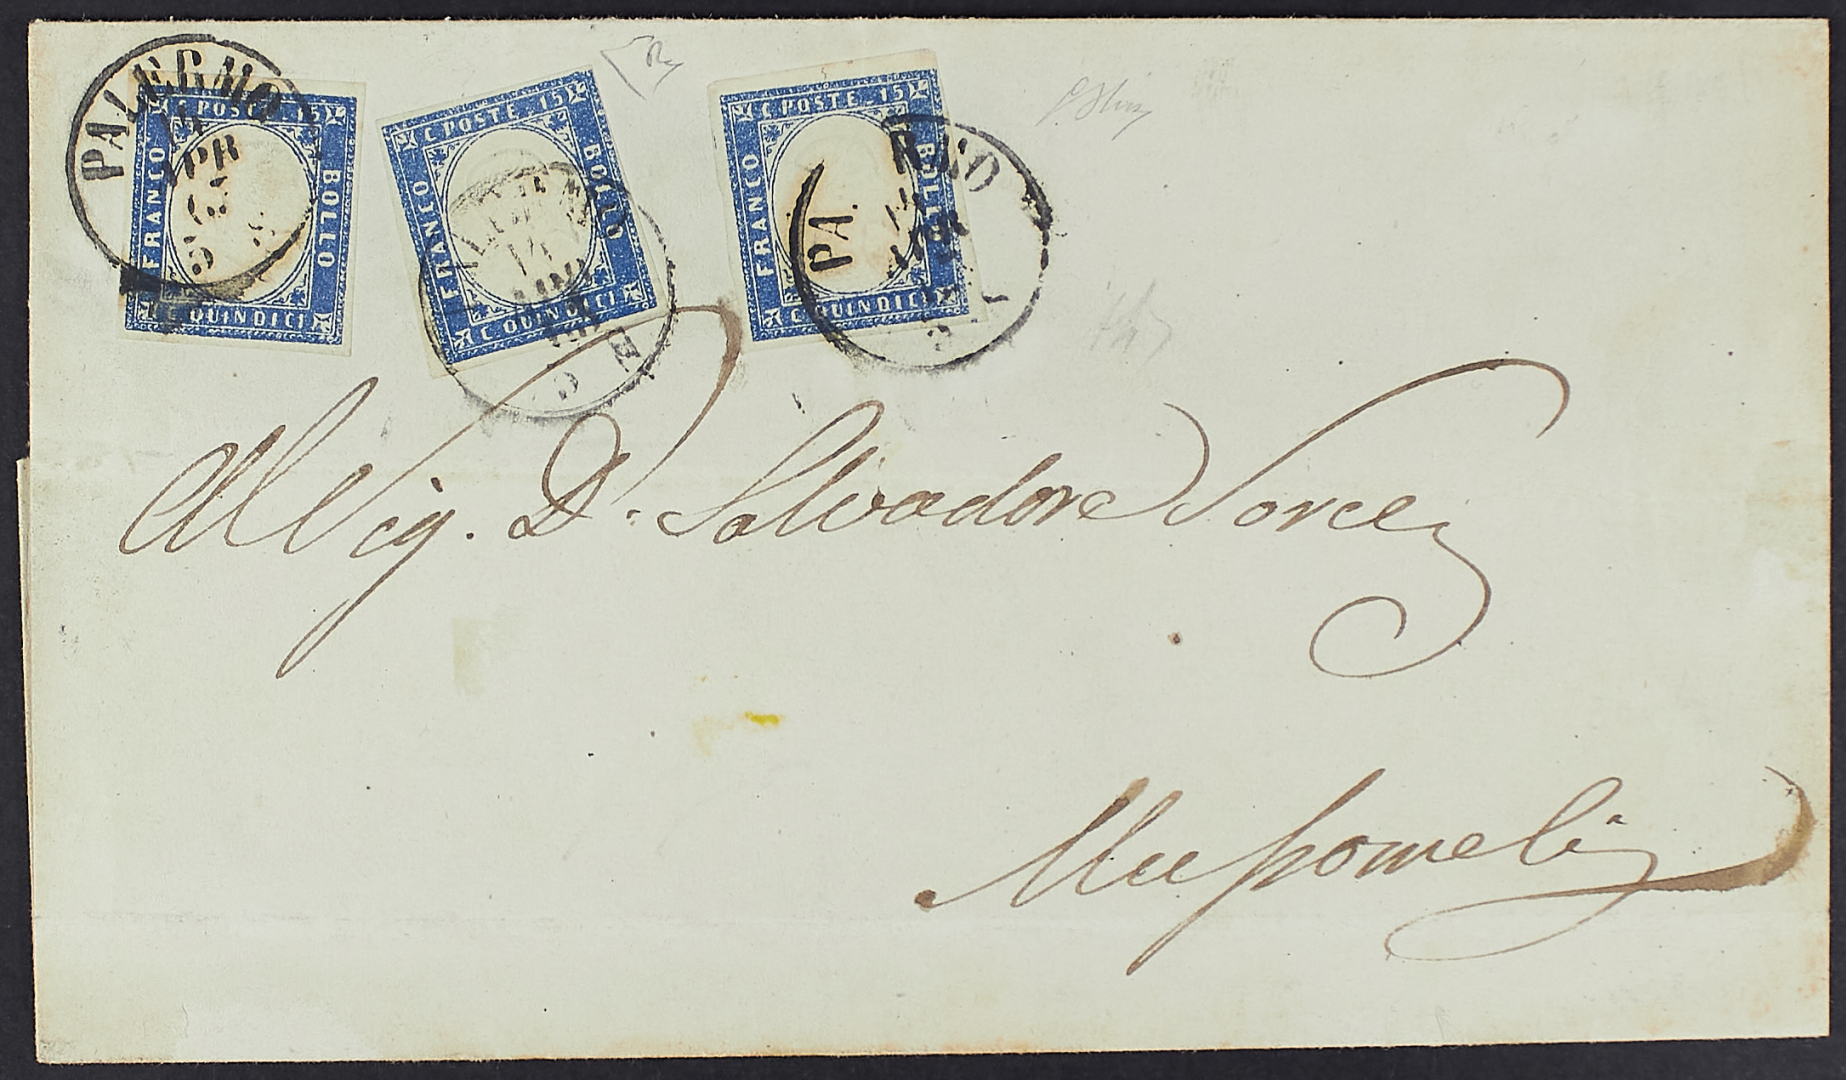 PALERMO
14
APR
63
C. POSTE 15
FRANCO
BOLLO
C. QUINDICI
C. POSTE 15
FRANCO
BOLLO
C. QUINDICI
14
C. POSTE 15
FRANCO
BOLLO
C. QUINDICI
PA
RMO
Al Sig. D. Salvadore Sorce
Mussomeli